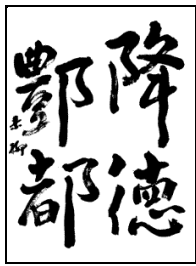 降德
酆都